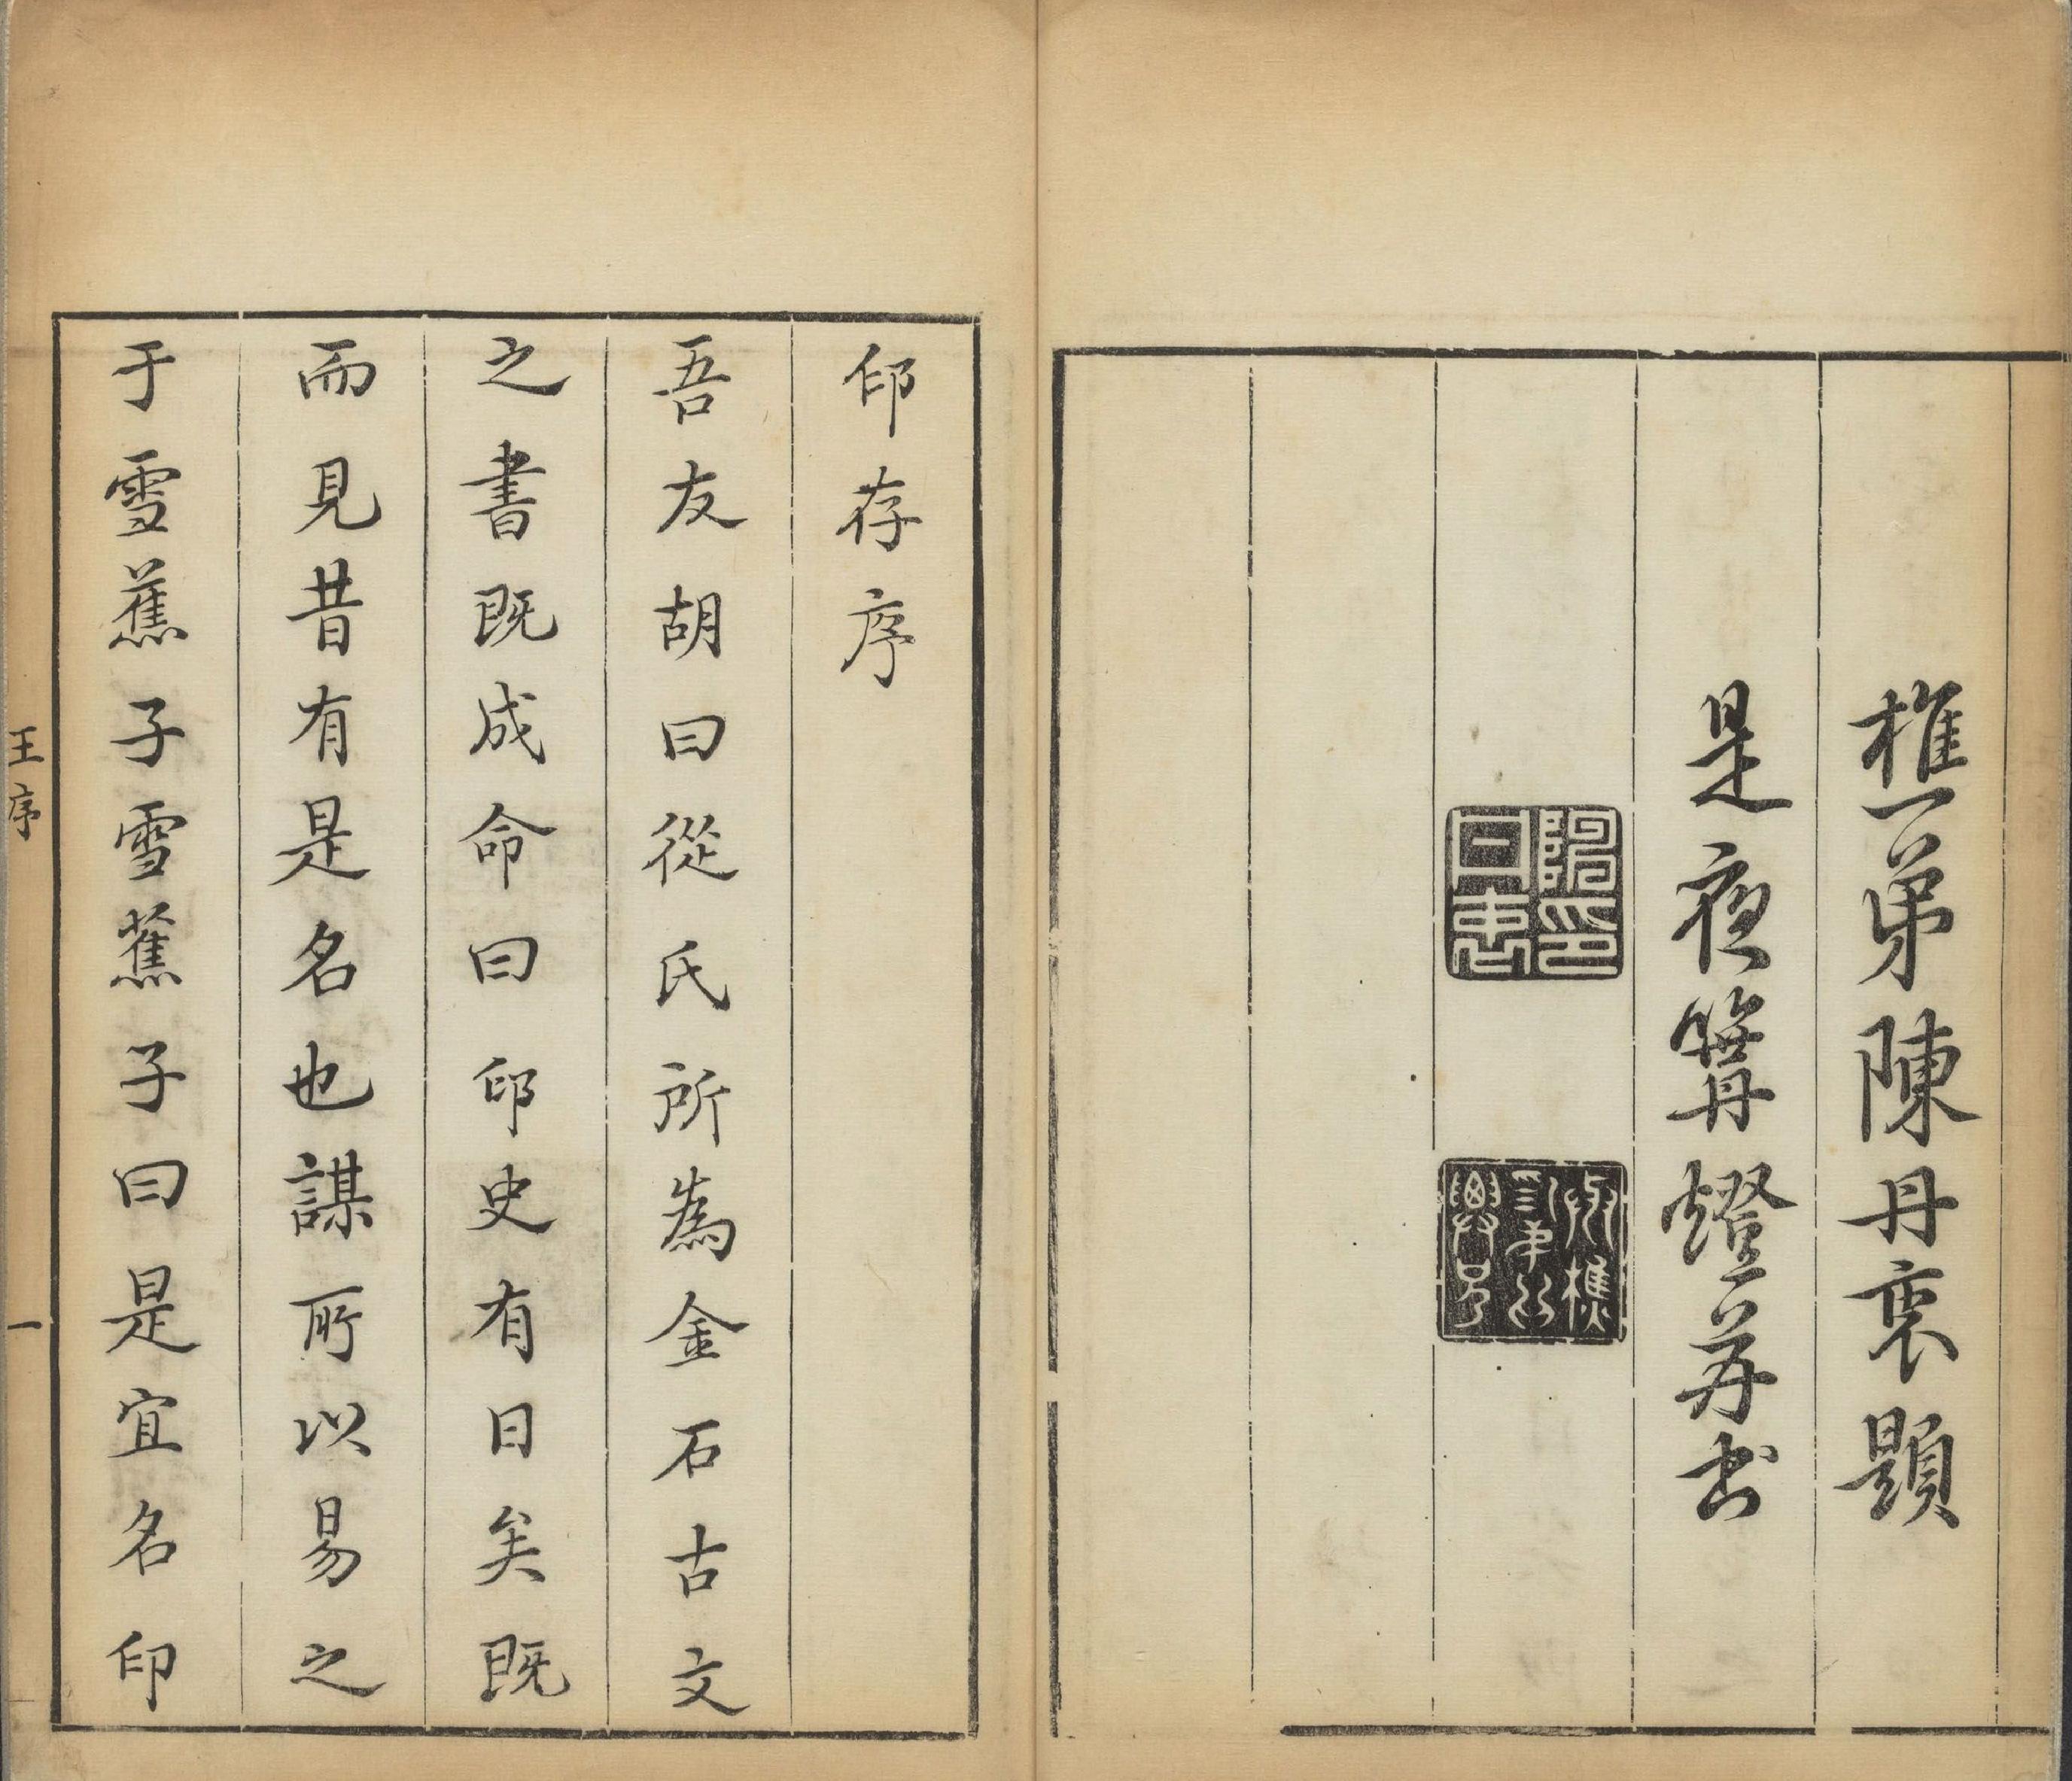 樵弟陳丹衷題
是夜篝燈并书
印存序
吾友胡曰從氏所為金石古文
之書既成命曰印史有日矣既
而見昔有是名也謀所以易之
于雪蕉子雪蕉子曰是宜名印
王序
一